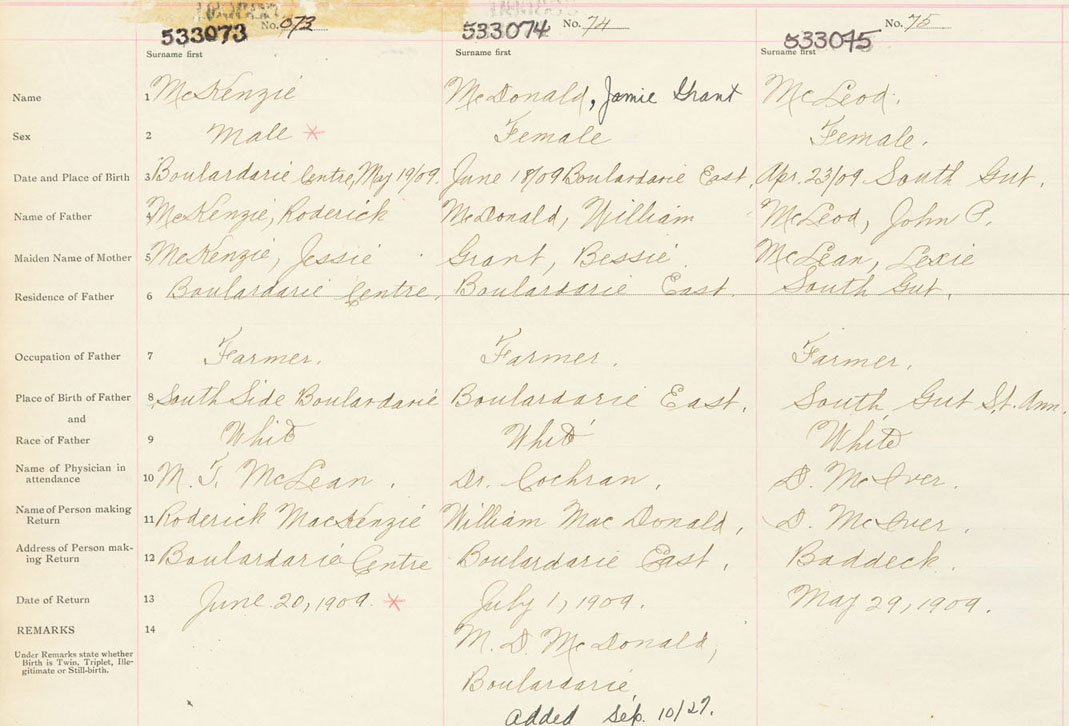 533073 No. 073
533074 No. 74
533075 No. 75
Surname first
Surname first
Surname first
Name 1 McKenzie McDonald, Jamie Grant McLeod.
Sex 2 Male * Female Female.
Date and Place of Birth 3 Boulardarie Centre, May 19/09. June 18/09 Boulardarie East. Apr. 23/09 South Gut.
Name of Father McKenzie, Roderick McDonald, William McLeod, John P.
Maiden Name of Mother 5 McKenzie, Jessie Grant, Bessie McLean, Lexie
Residence of Father 6 Boulardarie Centre. Boulardarie East. South Gut.
Occupation of Father 7 Farmer. Farmer. Farmer.
Place of Birth of Father 8 South Side Boulardarie Boulardarie East. South Gut St. Ann.
and
Race of Father 9 White White White
Name of Physician in
attendance 10 M. T. McLean. Dr. Cochran. D. McIver.
Name of Person making
Return 11 Roderick MacKenzie William MacDonald, D. McIver.
Address of Person mak-
ing Return 12 Boulardarie Centre Boulardarie East. Baddeck.
Date of Return 13 June 20, 1909. * July 1, 1909. May 29, 1909.
REMARKS 14 M. D. McDonald,
Under Remarks state whether
Birth is Twin, Triplet, Ille-
gitimate or Still-birth.
Boulardarie
added Sep. 10/27.